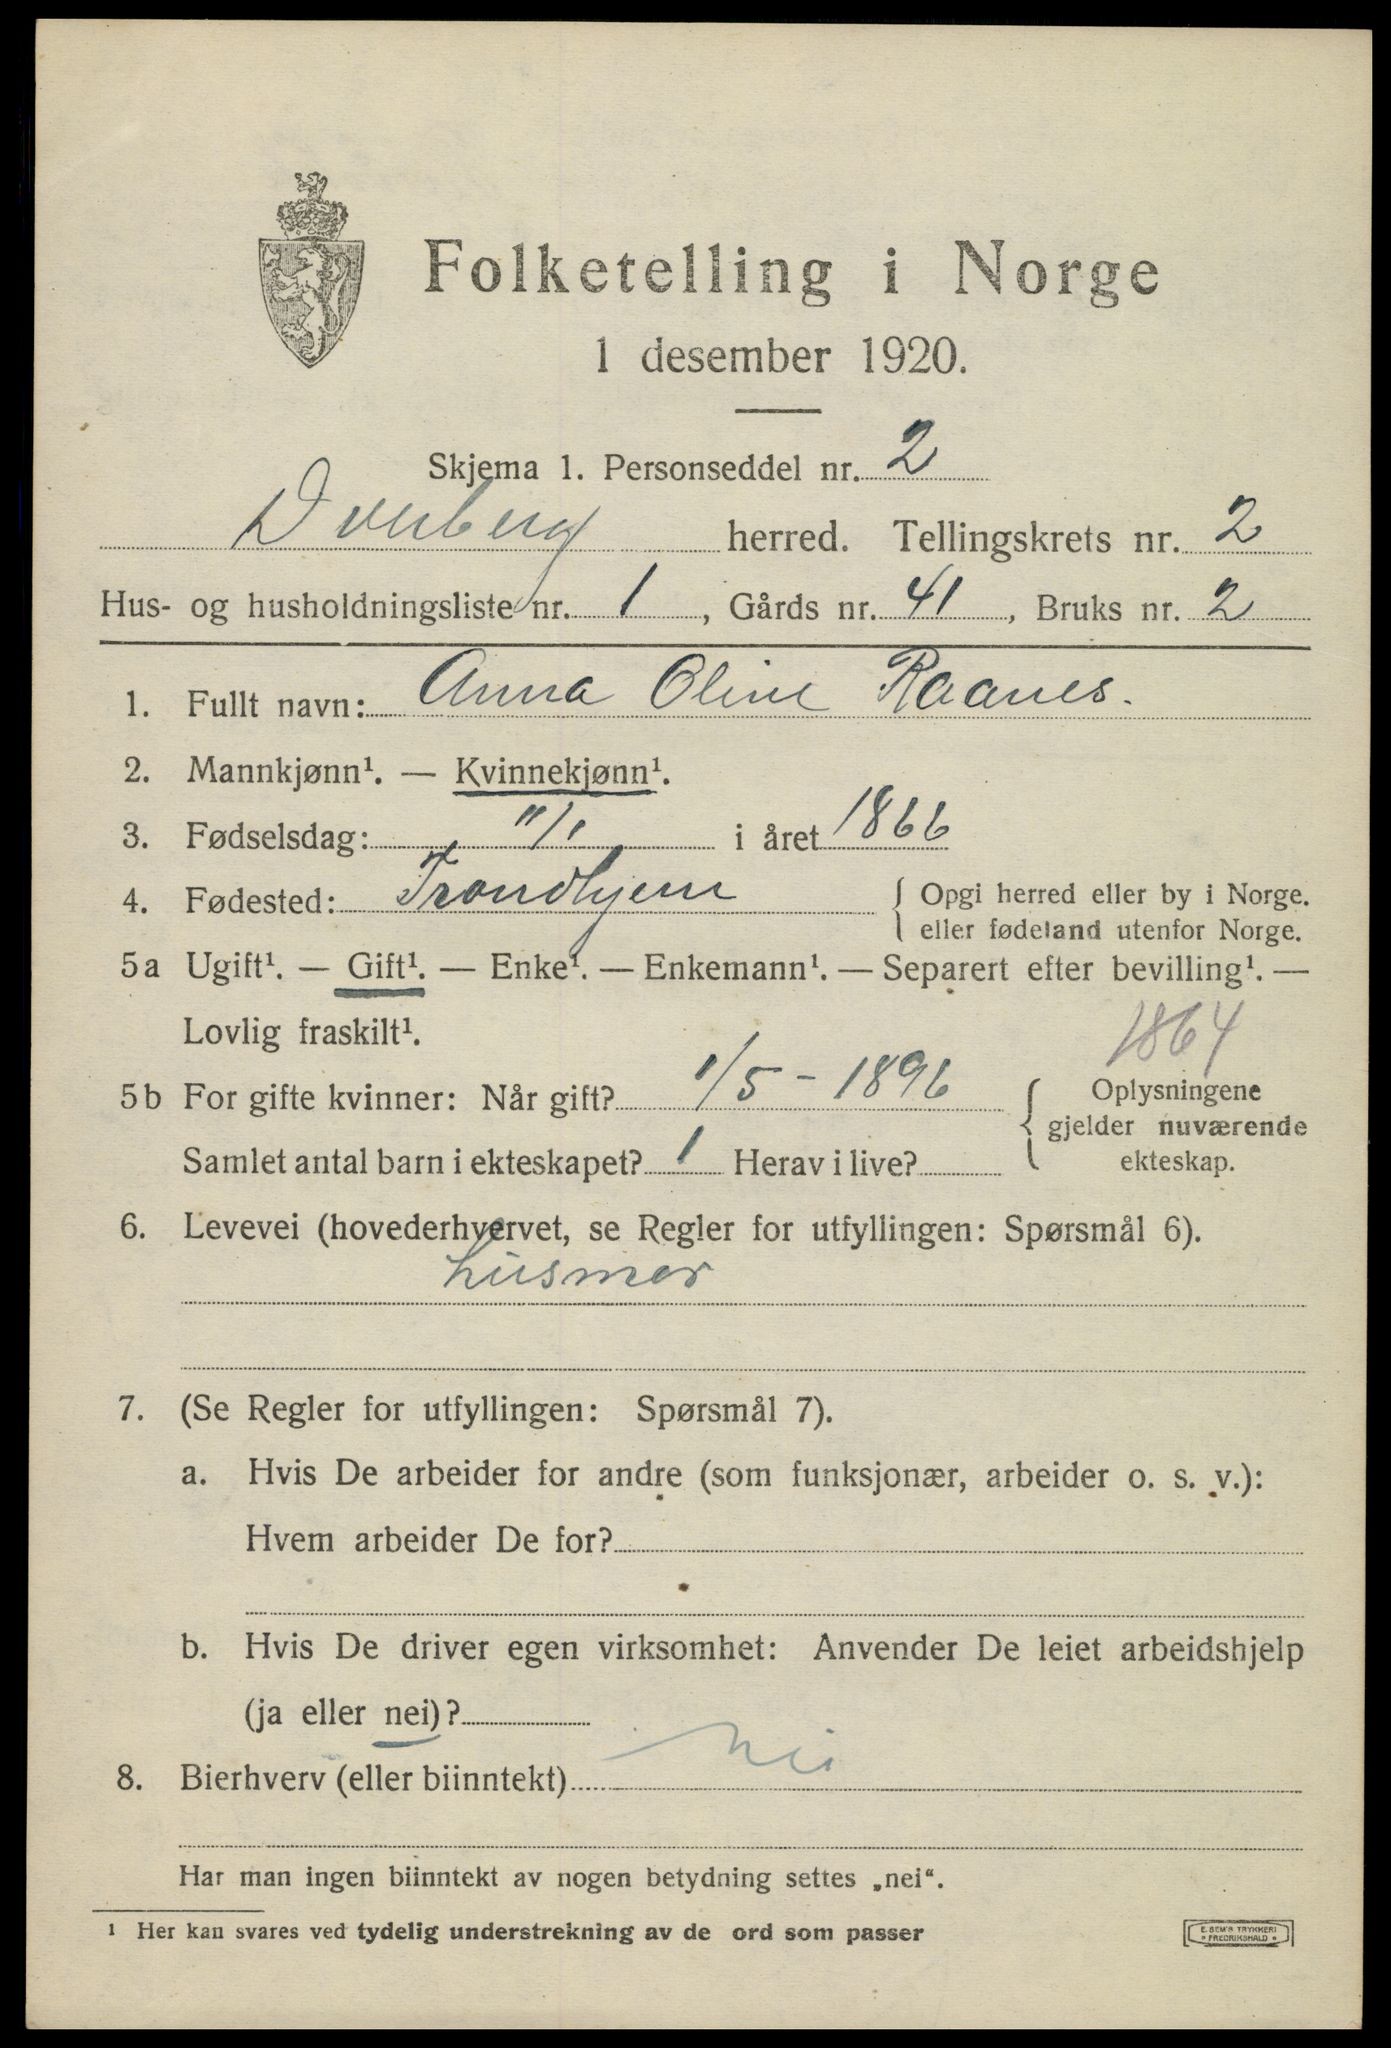 Folketelling i Norge
1 desember 1920.
Skjema 1. Personseddel nr. 2
Dverberg herred. Tellingskrets nr. 2
Hus- og husholdningsliste nr. 1, Gårds nr. 41, Bruks nr. 2
1. Fullt navn: Anna Oline Raanes.
2. Mannkjønn¹. — Kvinnekjønn¹.
3. Fødselsdag: 11/1 i året 1866
4. Fødested: Trondhjem { Opgi herred eller by i Norge.
eller fødeland utenfor Norge.
5a Ugift¹. — Gift¹. — Enke¹. — Enkemann¹. — Separert efter bevilling¹. —
Lovlig fraskilt¹.
1864
5b For gifte kvinner: Når gift? 1/5 - 1896 { Oplysningene
gjelder nuværende
Samlet antal barn i ekteskapet? 1 Herav i live?
ekteskap.
6. Levevei (hovederhvervet, se Regler for utfyllingen: Spørsmål 6).
Husmor
7. (Se Regler for utfyllingen: Spørsmål 7).
a. Hvis De arbeider for andre (som funksjonær, arbeider o. s. v.):
Hvem arbeider De for?
b. Hvis De driver egen virksomhet: Anvender De leiet arbeidshjelp
(ja eller nei)?
8. Bierhverv (eller biinntekt) Nei
Har man ingen biinntekt av nogen betydning settes „nei“.
¹ Her kan svares ved tydelig understrekning av de ord som passer
E. SEM'S TRYKKERI
• FREDRIKSHALD •